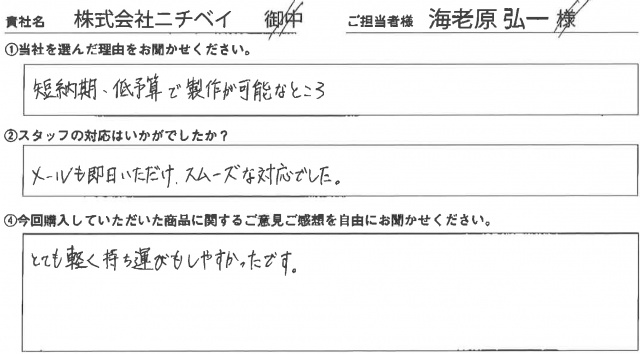 貴社名 株式会社ニチベイ 御中 ご担当者様 海老原 弘一 様
①当社を選んだ理由をお聞かせください。
短納期、低予算で製作が可能なところ
②スタッフの対応はいかがでしたか？
メールも即日いただけ、スムーズな対応でした。
④今回購入していただいた商品に関するご意見ご感想を自由にお聞かせください。
とても軽く持ち運びもしやすかったです。